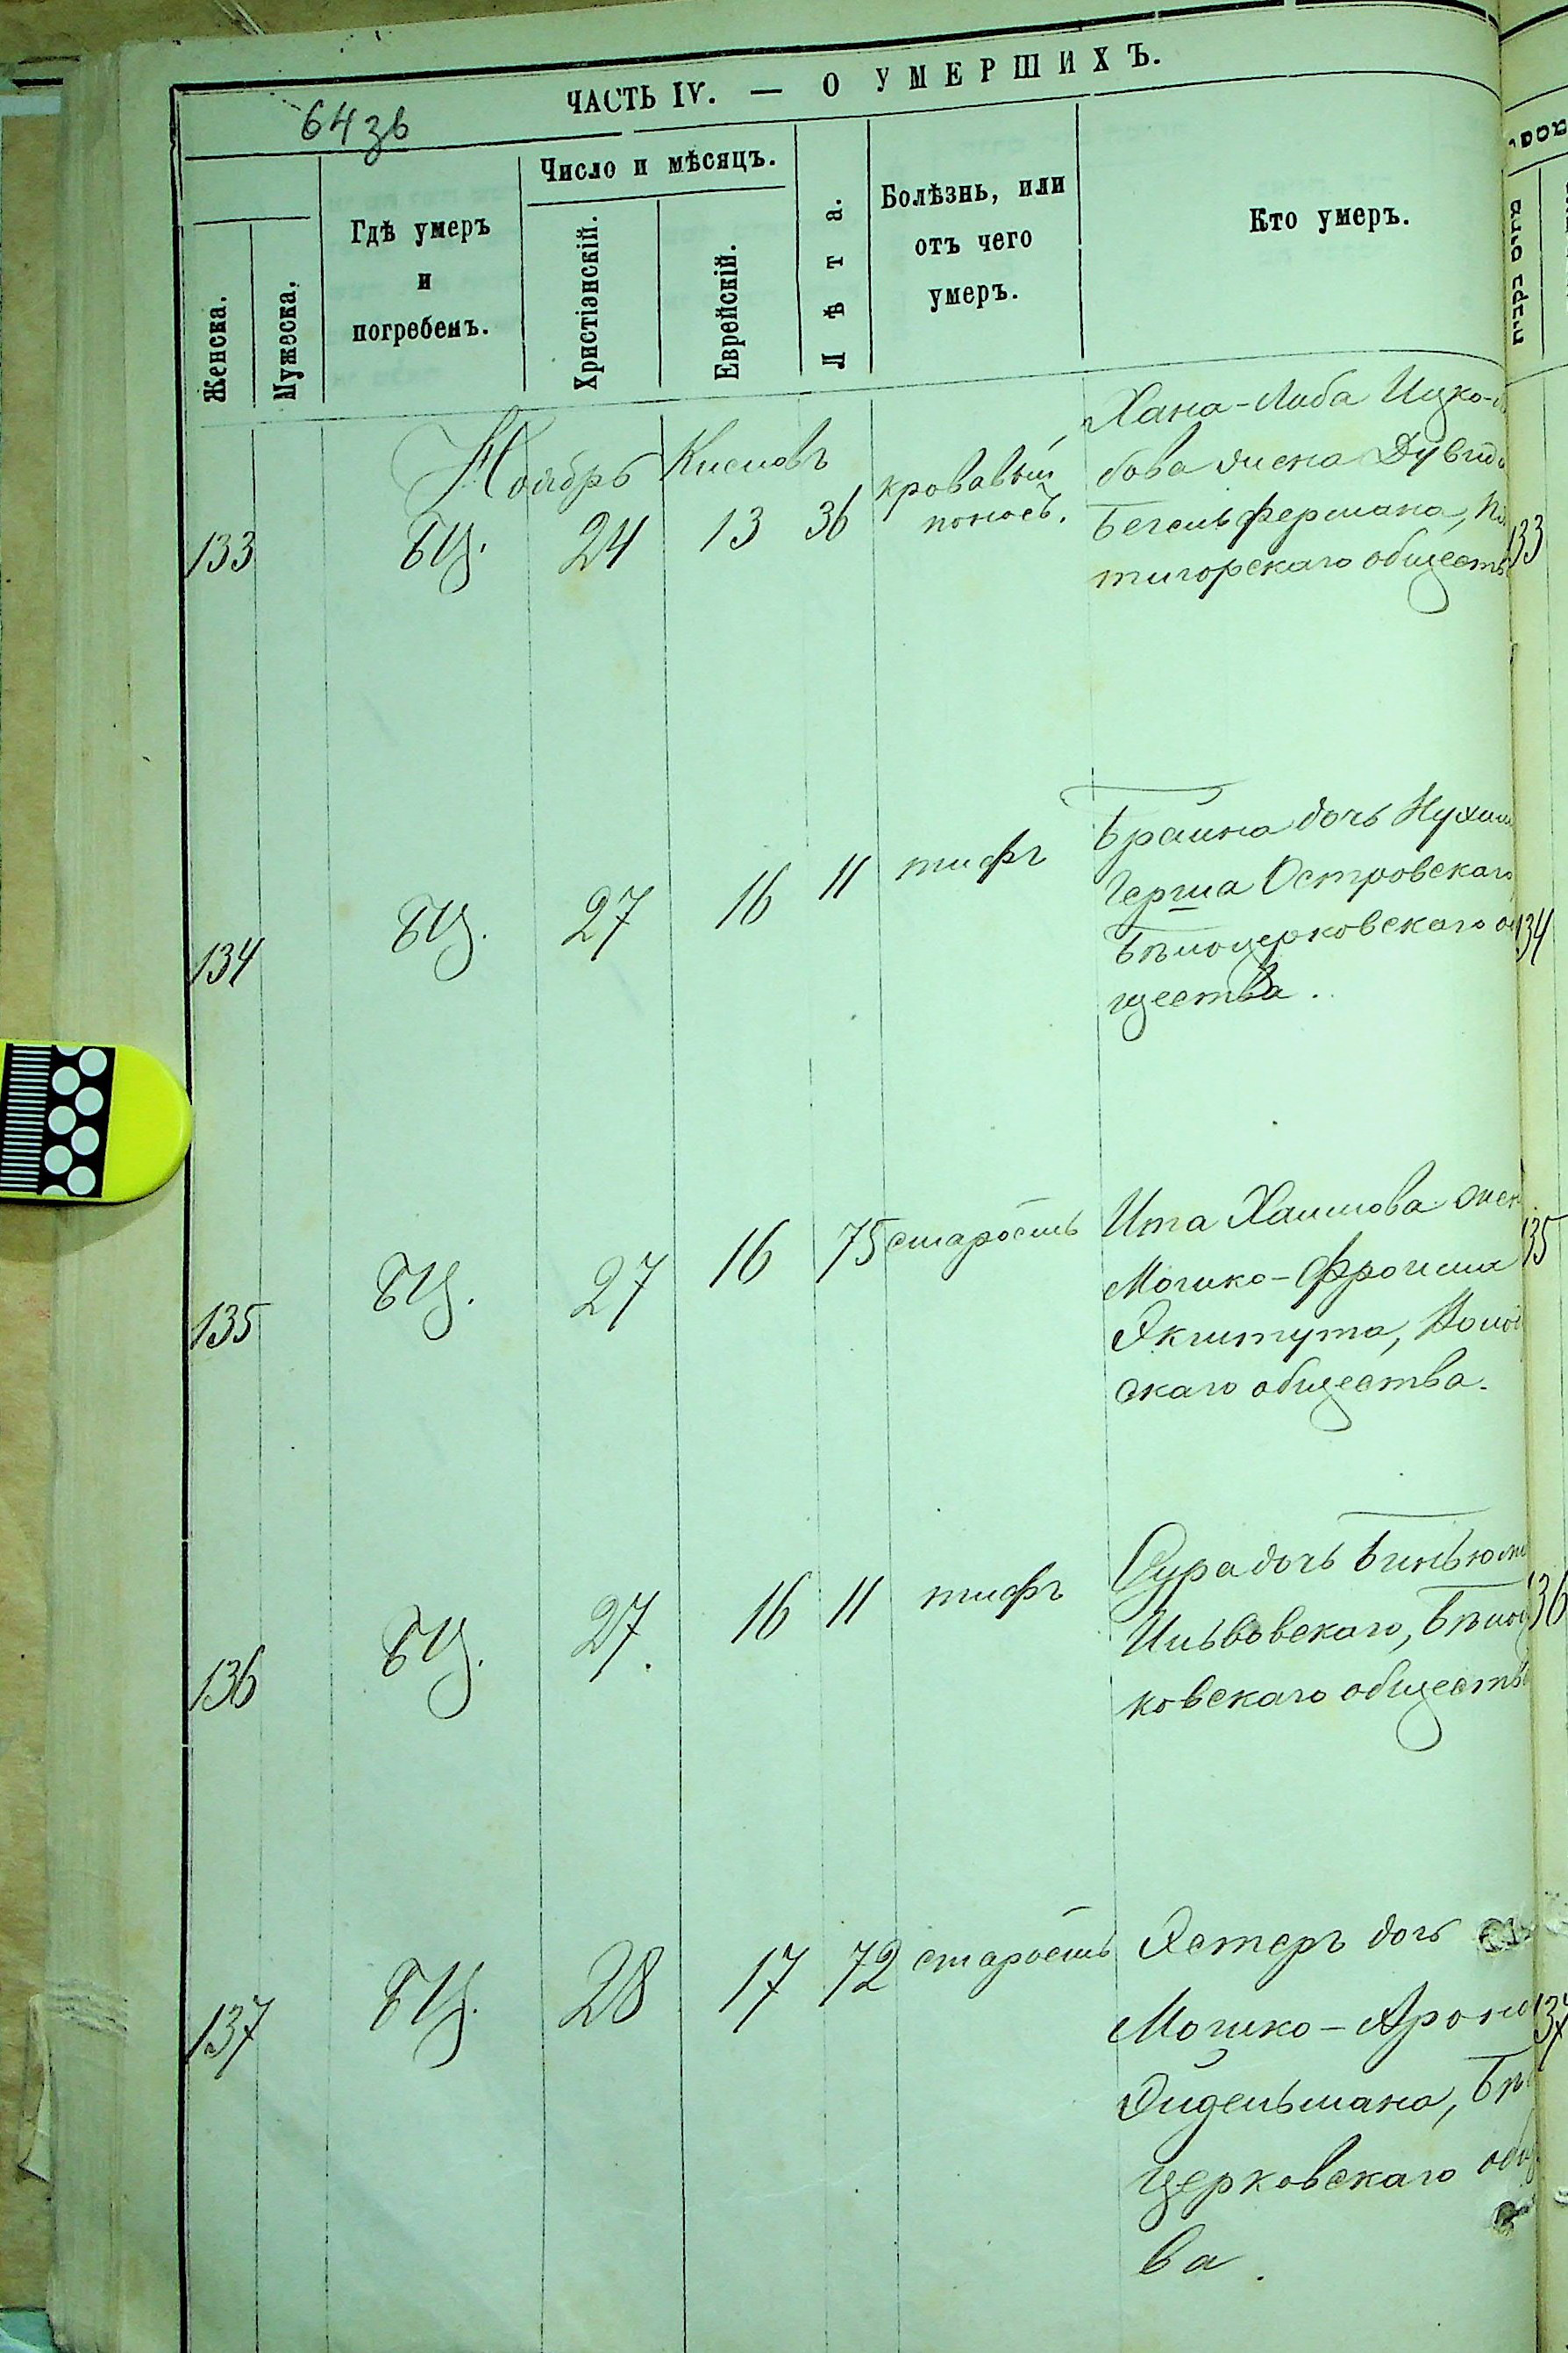 ЧАСТЬ IV. — О УМЕРШИХЪ.
64зв
Женска.
Мужеска.
Гдѣ умеръ
и
погребенъ.
Число и мѣсяцъ.
Христіанскій.
Еврейскій.
Лѣта.
Болѣзнь, или
отъ чего
умеръ.
Кто умеръ.
Ноябрь Кислевъ
133 БЦ. 24 13 36 кровавый
поносъ.
Хана-Либа Ицко-
бова жена Дувид
Бегельфермана, П
тигорскаго обществ
133
134 БЦ. 27 16 11 тифъ
Брайна дочь Нухим
Герша Островскаго
Бѣлоцерковскаго об
щества.
134
135 БЦ. 27 16 75 старость
Ита Хаимова жен
Мошко-Фроима
скаго общества.
135
136 БЦ. 27. 16 11 тифъ
Сура дочь Биньюм
Ильвовскаго, Бѣлоц
ковскаго обществ
136
137 БЦ. 28 17 72 старость
Эстеръ дочь
Мошко-Арона
Эйдельмана, Бѣ
церковскаго общ
ва.
137